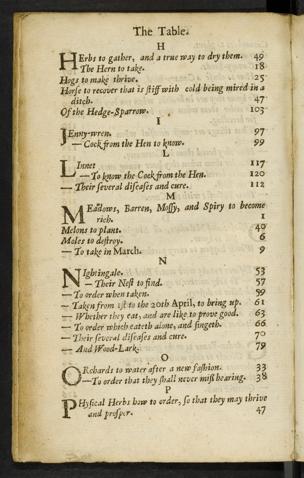 The Table.
H
HErbs to gather, and a true way to dry them. 49
The Hern to take. 18
Hogs to make thrive. 25
Horse to recover that is stiff with cold being mired in a
ditch. 47
Of the Hedge-Sparrow. 103
I
JEnny-wren. 97
— Cock from the Hen to know. 99
L
LInnet 117
— To know the Cock from the Hen. 120
— Their several diseases and cure. 112
M
MEadows, Barren, Mossy, and Spiry to become
rich. 1
Melons to plant. 40
Moles to destroy. 6
— To take in March. 9
N
NIghtingale. 53
— Their Nest to find. 57
— To order when taken. 59
— Taken from 1st to the 20th April, to bring up. 61
— Whether they eat, and are like to prove good. 63
— To order which eateth alone, and singeth. 66
— Their several diseases and cure. 70
— And Wood-Lark. 79
O
ORchards to water after a new fashion. 33
— To order that they shall never miss bearing. 38
P
PHysical Herbs how to order, so that they may thrive
and prosper. 47